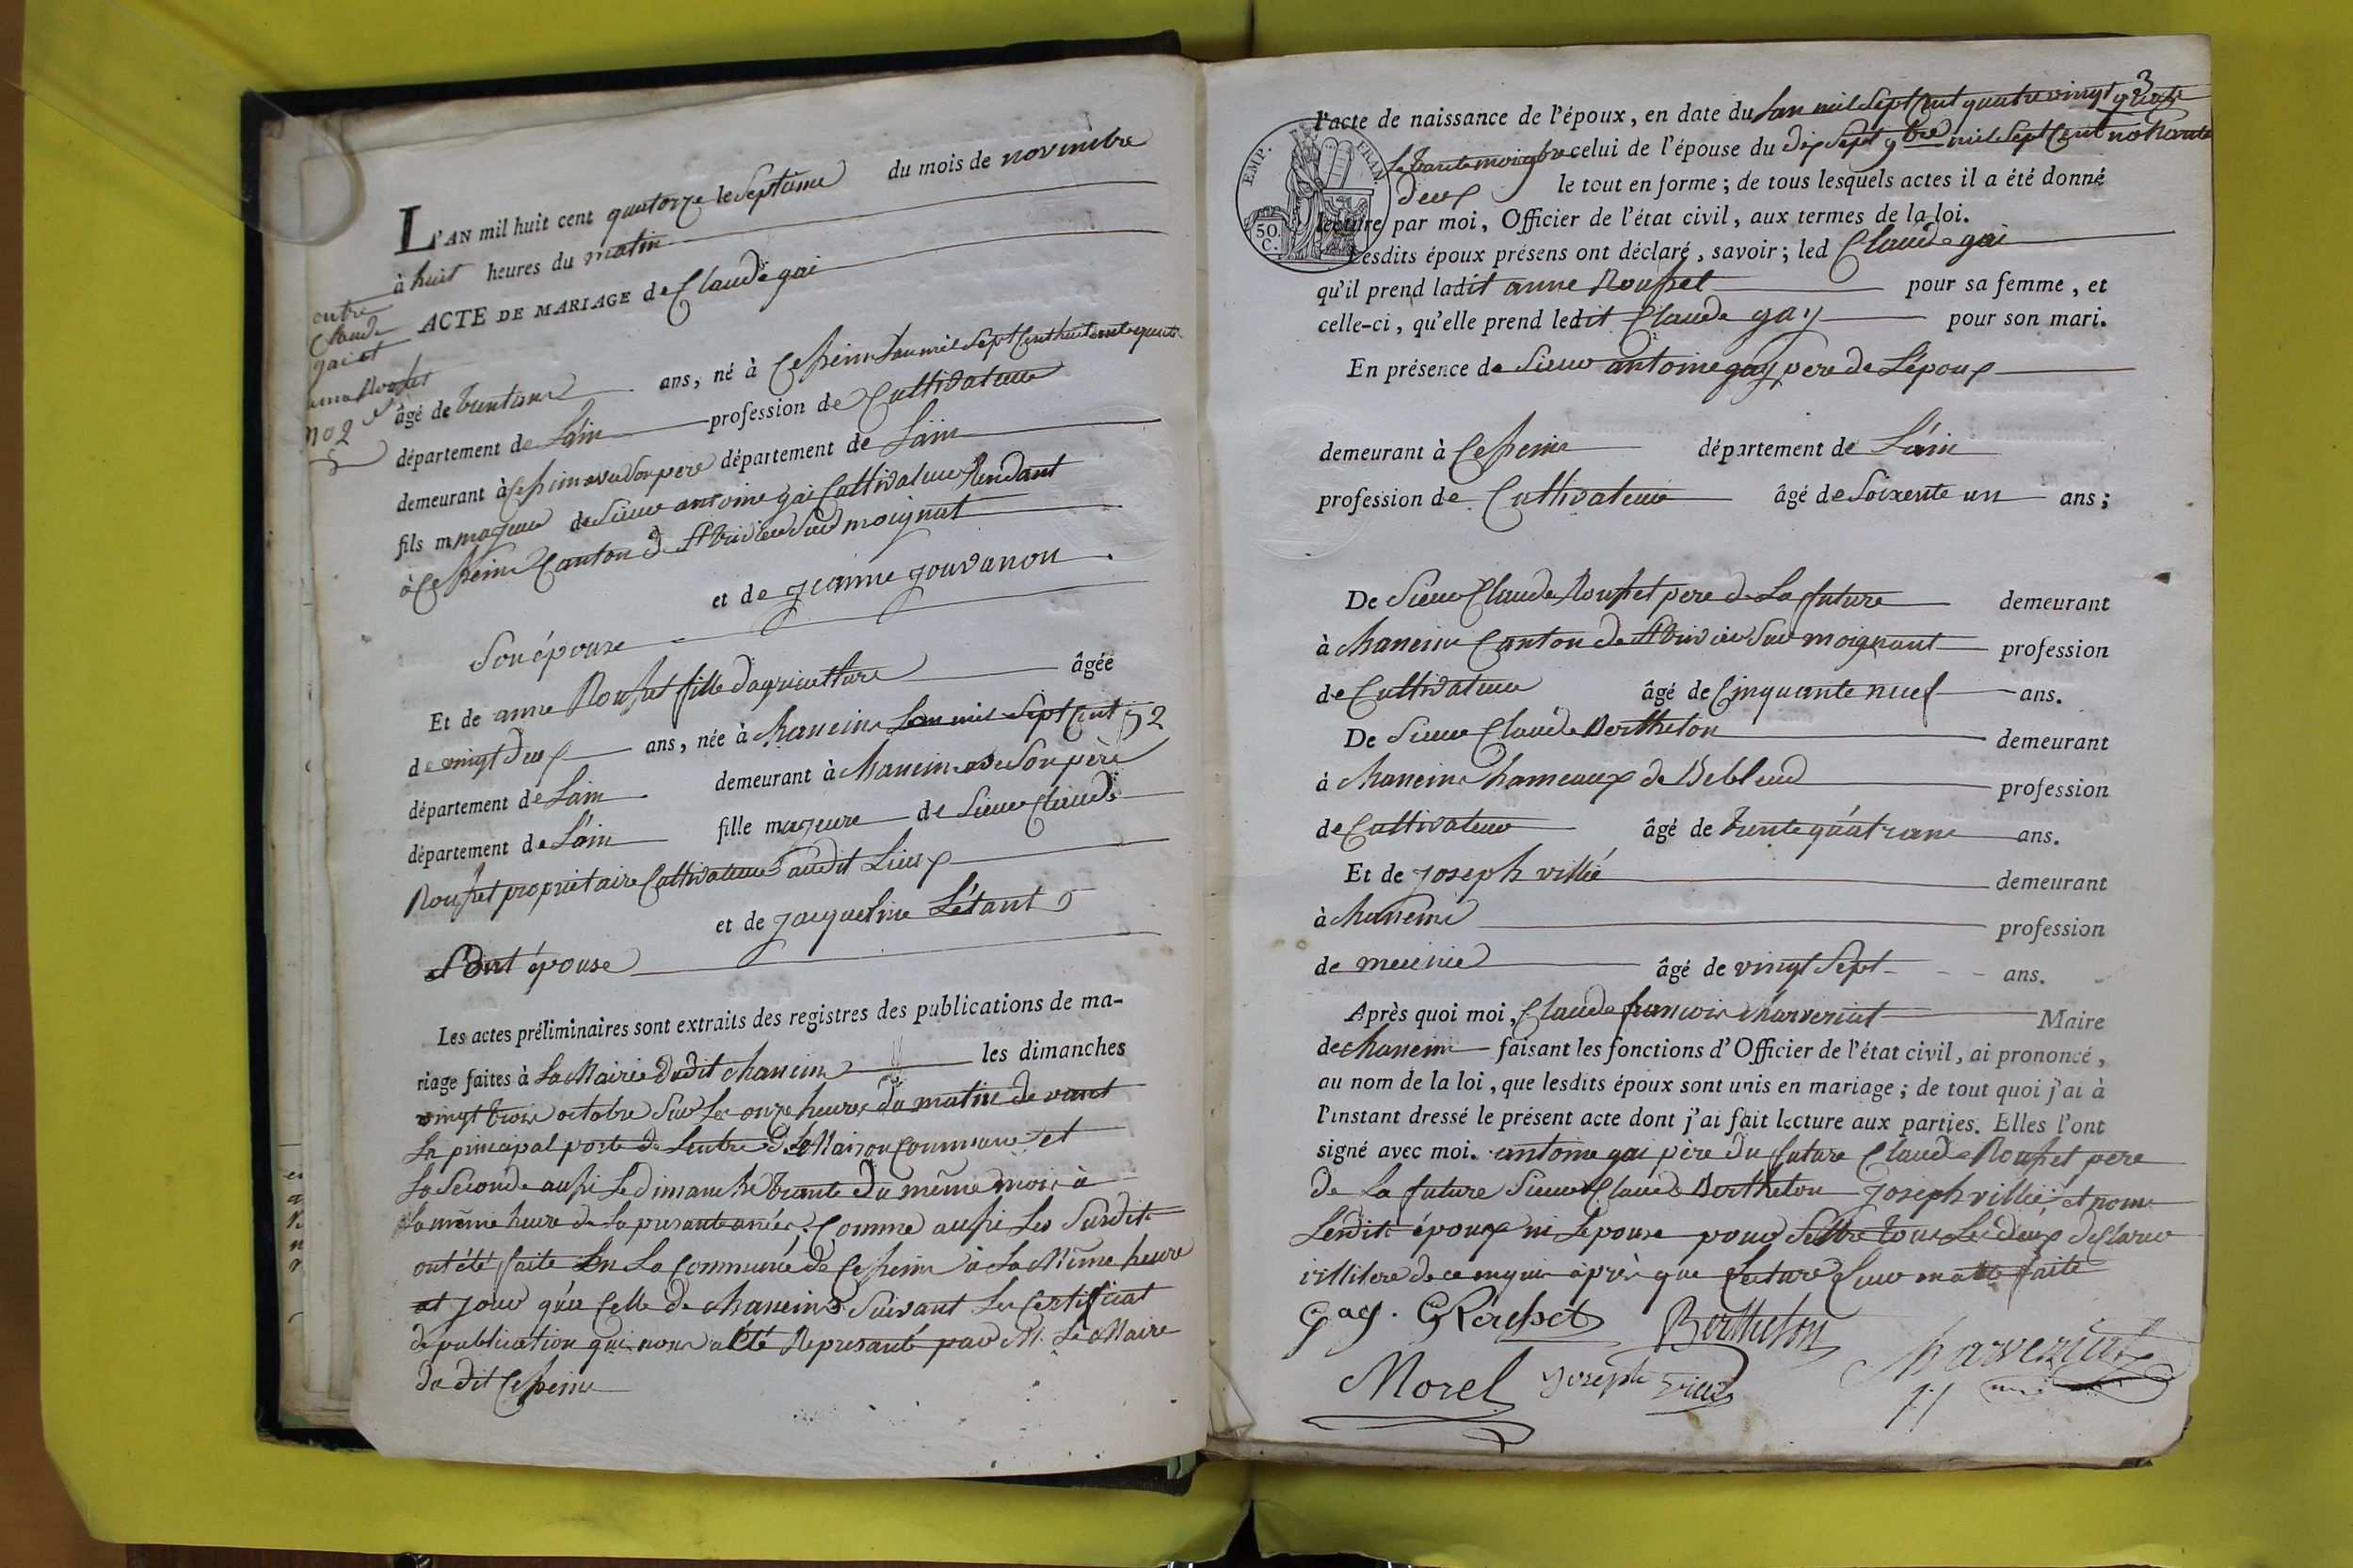 L'AN mil huit cent quatorze le Septième du mois de novembre
à huit heures du matin
ACTE DE MARIAGE de Claude gai
entre
Claude
gai et
anna
no 2
âgé de trentians ans, né à Cessein Lan mil Sept Cent huitente quatr
département de Lain profession de Cultivateur
demeurant à Cessein avec Son père département de Lain
fils majeur de Sieur antoine gai Cultivateur Rendant
à Cesseins Canton de St trivier Sur moignat
et de jeanne jouvanon
Son épouse
Et de anne Rousset fille dagriculture âgée
de vingt deux ans, née à chaneins Lan mil Sept Cent 92
département de Lain demeurant à chaneins avec Son père
département de Lain fille majeure de Sieur Claude
Rousset propriétaire Cultivateur audit Lieux
et de jacqueline Létant
Sont épouse
Les actes préliminaires sont extraits des registres des publications de ma-
riage faites à La Mairie dudit chaneins les dimanches
vingt trois octobre Sur Les onze heures du matin devant
La principal porte de Lentre de La Maison Commune et
La Seconde aussi Le dimanche trante du même mois à
la même heure de La presante année. Comme aussi Les Susdits
ont été faite En La Commune de Cesseins à La Même heure
et jour que Celle de chaneins Suivant Les Certificat
de publication qui nous a été Représanté par M. Le Maire
du dit Cesseins
3
l'acte de naissance de l'époux, en date du Lan mil Sept Cent quatre vingt quatre
Le trante celui de l'épouse du dix Sept 9bre mil Sept Cent nonante
deux le tout en forme; de tous lesquels actes il a été donné
lecture par moi, Officier de l'état civil, aux termes de la loi.
EMP. FRAN.
50.
C.
Lesdits époux présens ont déclaré, savoir; led Claude gai
qu'il prend ladit anne Rousset pour sa femme, et
celle-ci, qu'elle prend ledit Claude gay pour son mari.
En présence de Sieur antoine gay pere de L'époux
demeurant à Cesseins département de L'ain
profession de Cultivateur âgé de Soixente un ans;
De Sieur Claude Rousset pere de La future demeurant
à chaneins Canton de St trivier Sur moignant profession
de Cultivateur âgé de Cinquante neuf ans.
De Sieur Claude Berthelon demeurant
à chaneins hameaux de Bebleud profession
de Cultivateur âgé de trente quatr ans ans.
Et de joseph villié demeurant
à chaneins profession
de meunie âgé de vingt Sept ans.
Après quoi moi, Claude francois charvériat Maire
de chaneins faisant les fonctions d'Officier de l'état civil, ai prononcé,
au nom de la loi, que lesdits époux sont unis en mariage; de tout quoi j'ai à
l'instant dressé le présent acte dont j'ai fait lecture aux parties. Elles l'ont
signé avec moi. antoine gai père du future Claude Rousset pere
de La future Sieur Claude Berthelon joseph villié et nom
Lesdits époux ni Lépouse pour Settre tous Les deux declarer
illitere de ce enquis après que Lecture Leur faite
Gay. C Rousset Berthelon charveriat
Morel joseph vilié